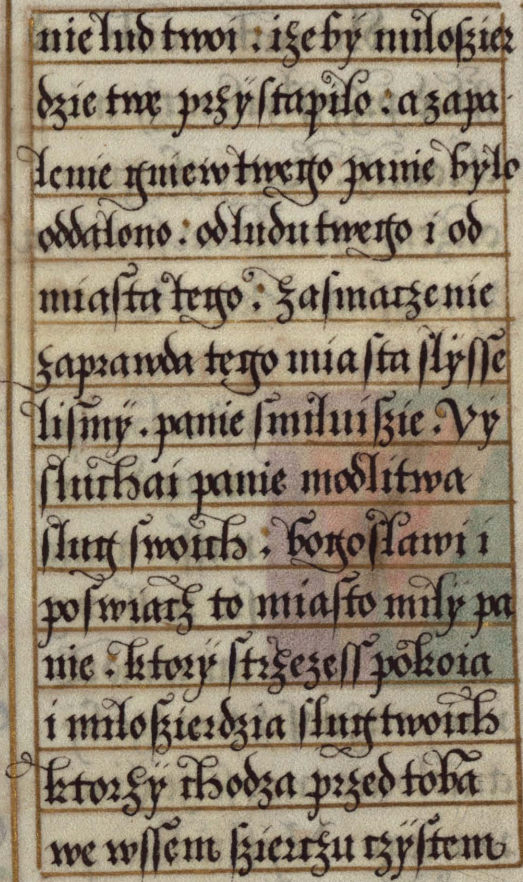 nie lud twoi : iżeby miloſzier
dzie twe przÿſtapilo : a zapa
lenie gniew twego panie bylo
oddalono : od ludu twego i od
miaſta tego : zaſmaczenie
zaprawda tego miaſta ſlÿſſe
liſmÿ . panie ſmilui ſzie . Vÿ
ſluchai panie modlitwa
ſlug ſwoich : bogoſlawi i
poſwiacz to miaſto milÿ pa
nie : ktorÿ ſtrzezeſſ pokoia
i miloſzierdzia ſlug twoich
ktorzÿ chodza przed toba
we wſſem ſzierczu czÿſtem